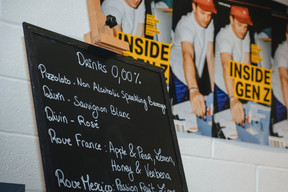 Drinks 0,00%
Pizzolato - Non Alcoholic Sparkling Beverage
Quvin - Sauvignon Blanc
Quvin - Rosé
Rove France: Apple & Pear, Lemon,
Honey & Verbena
Rove Mexico: Passion Fruit
INSIDE
GEN Z
INSIDE
GEN Z